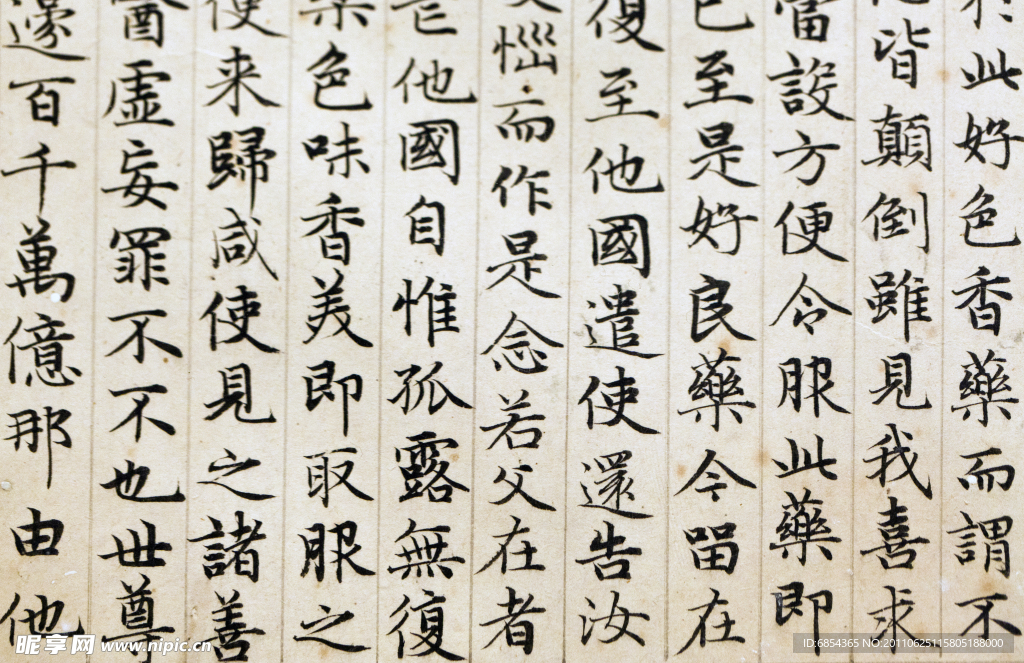 於此好色香藥而謂不
皆顛倒雖見我喜求
當設方便令服此藥即
已至是好良藥今留在
復至他國遣使還告汝
惱而作是念若父在者
他國自惟孤露無復
藥色味香美即取服之
便来歸咸使見之諸善
醫虛妄罪不不也世尊
邊百千萬億那由他
昵享网 www.nipic.cn
ID:6854365 NO:20110625115805188000